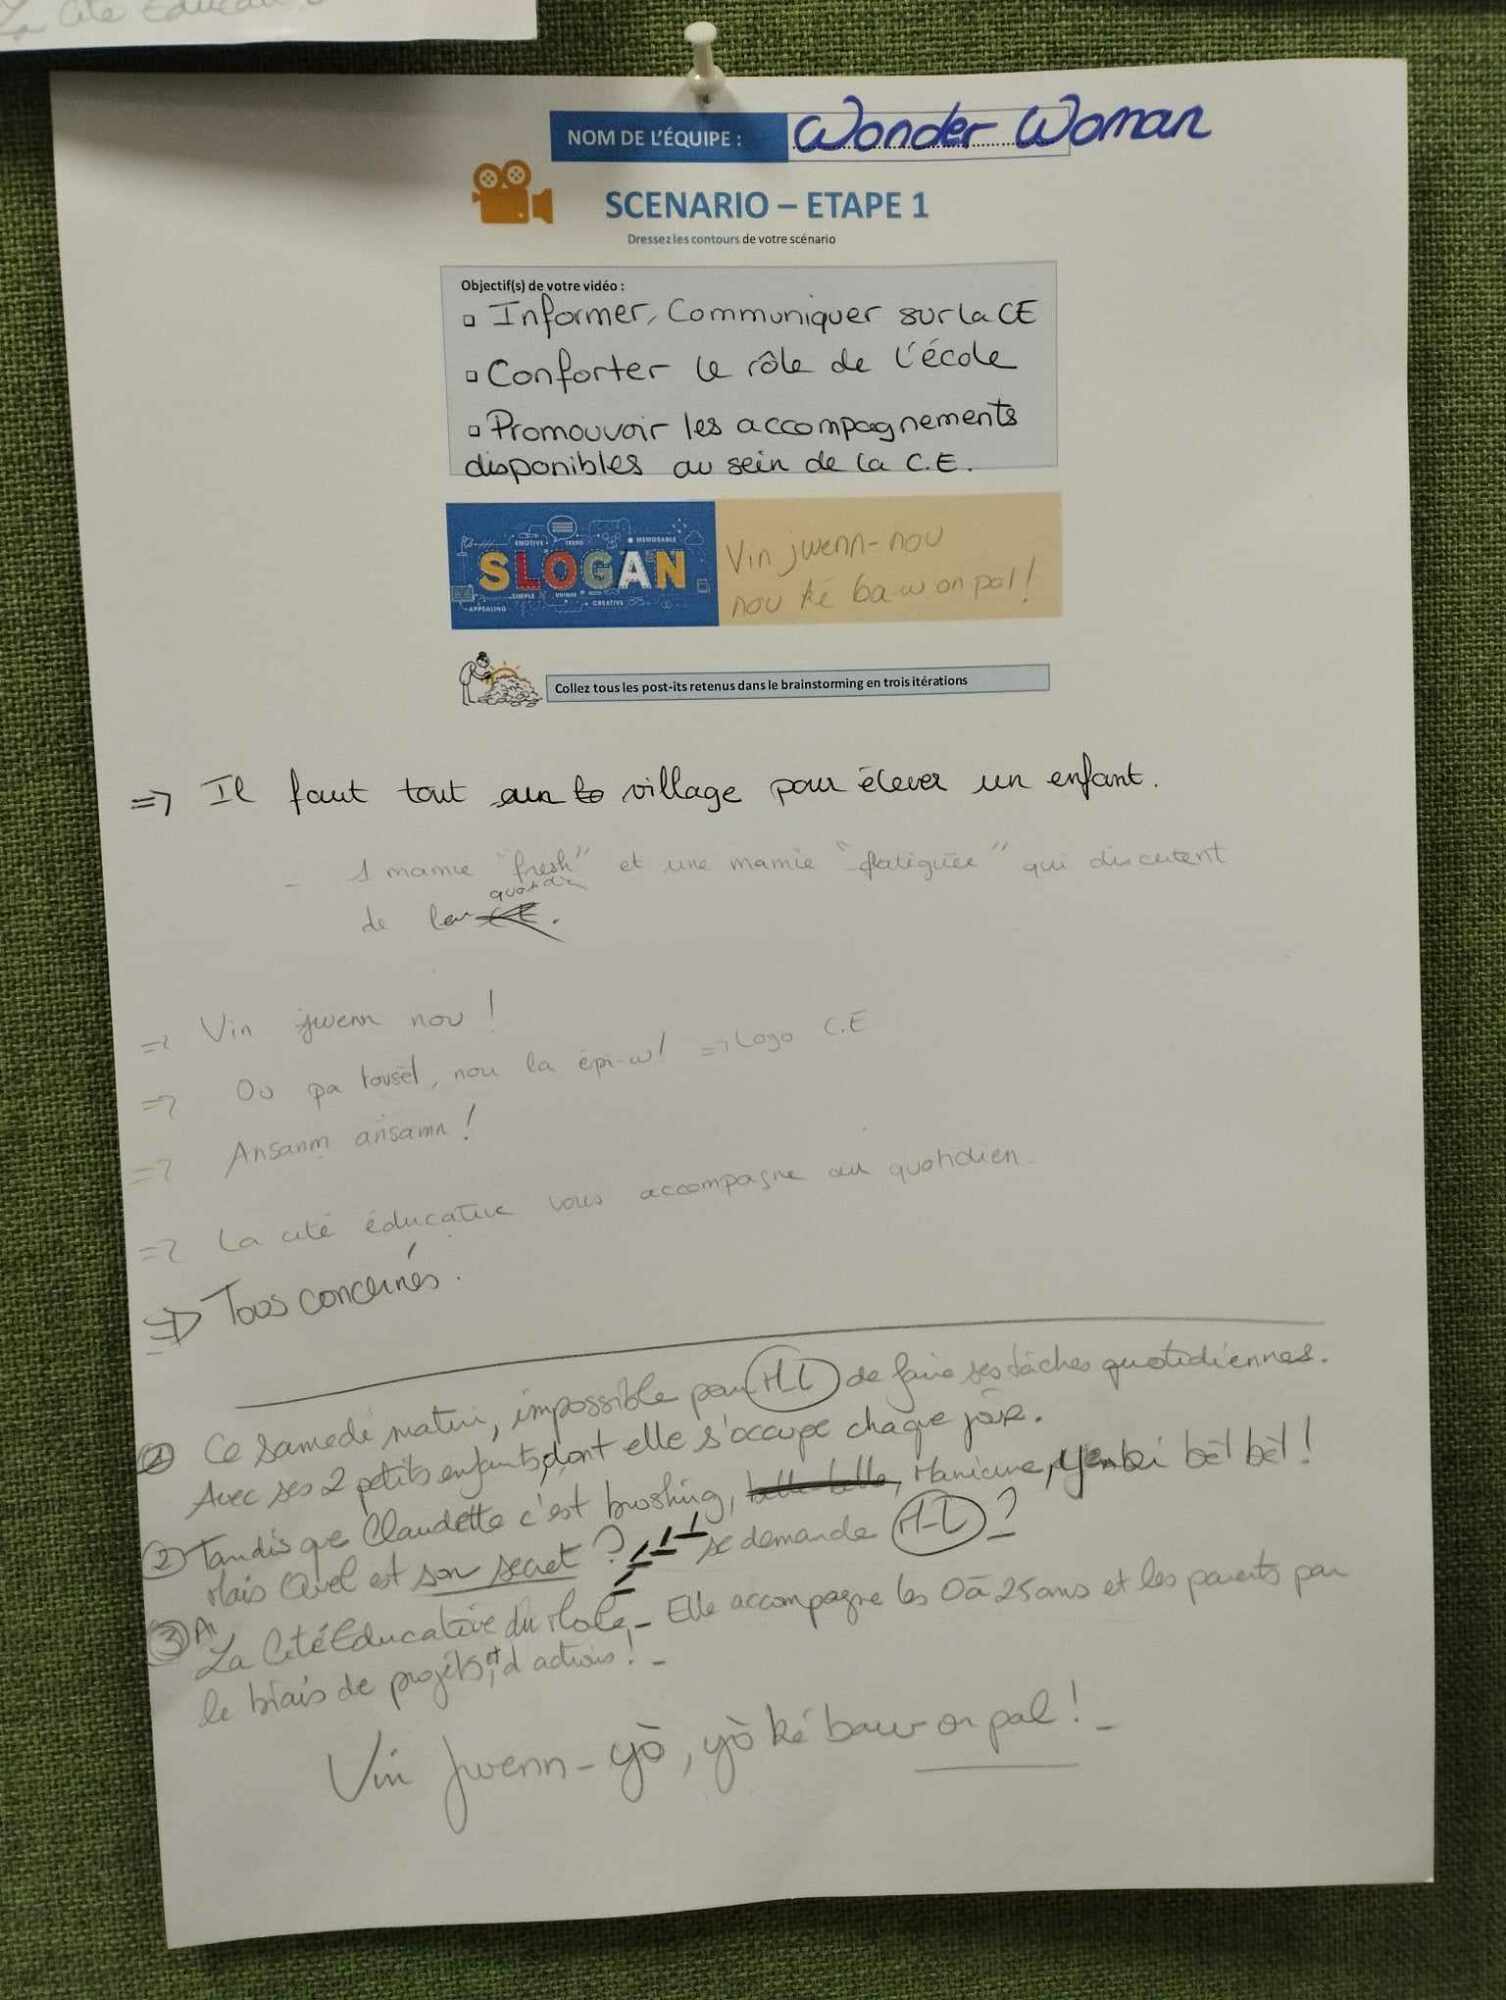 La Cité Educati
NOM DE L'ÉQUIPE : Wonder Woman
SCENARIO – ETAPE 1
Dressez les contours de votre scénario
Objectif(s) de votre vidéo :
▫ Informer, Communiquer sur la CE
▫ Conforter le rôle de l'école
▫ Promouvoir les accompagnements
disponibles au sein de la C.E.
EMOTIVE MEMORABLE
SLOGAN
APPEALING SIMPLE UNIQUE CREATIVE
Vin jwenn-nou
nou ké ba-w on pal !
Collez tous les post-its retenus dans le brainstorming en trois itérations
=> Il faut tout un village pour élever un enfant.
- 1 mamie "fresh" et une mamie "fatiguée" qui discutent
quotidien
de leur CE.
=> Vin jwenn nou !
=> Ou pa tousèl, nou la épi-w ! => Logo C.E
=> Ansanm ansanm !
=> La cité éducative vous accompagne au quotidien.
=> Tous concernés.
① Ce samedi matin, impossible pour de faire ses tâches quotidiennes.
Avec ses 2 petits enfants, dont elle s'occupe chaque jour.
② Tandis que Claudette c'est brushing, belle belle, Manicure, bèl bèl !
Mais Quel est son secret ? se demande ?
③ A,
La Cité Educative du - Elle accompagne les 0 à 25 ans et les parents par
le biais de projets, et d'actions ! -
Vin jwenn-yo, yo ké baw on pal ! -